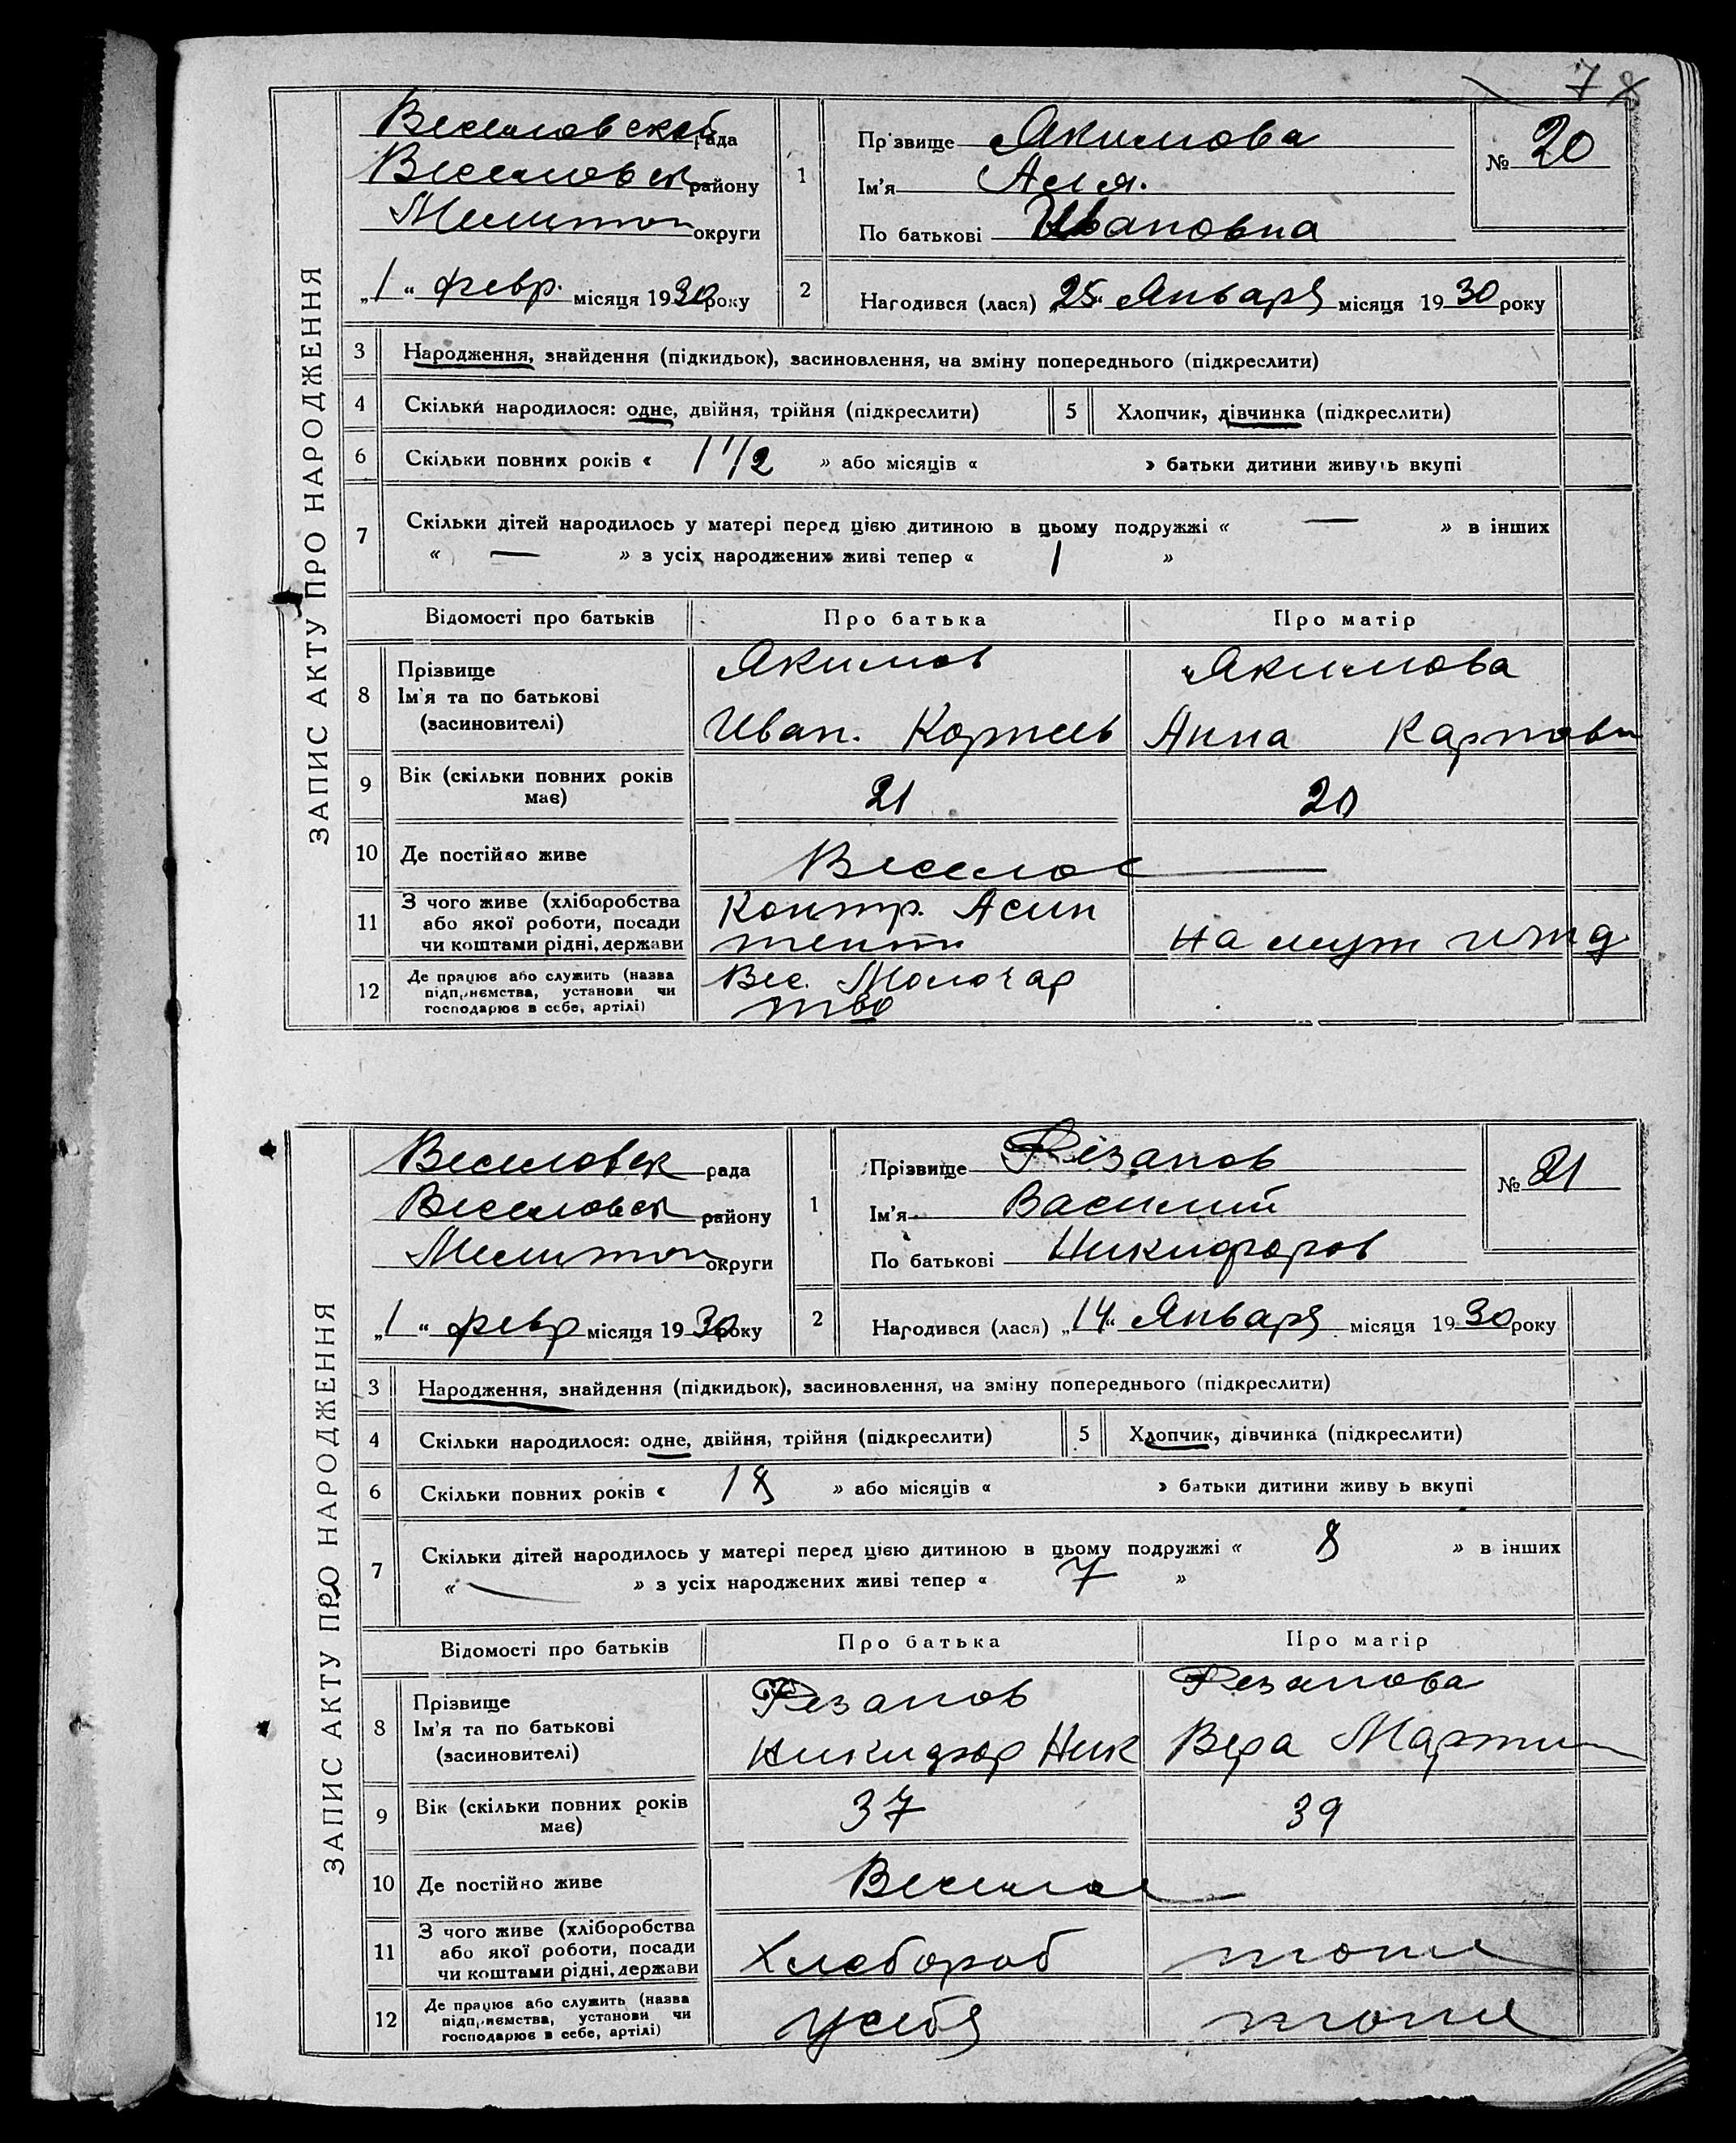 7
ЗАПИС АКТУ ПРО НАРОДЖЕННЯ
Веселовской рада
Веселовск району
Мелитоп округи
„1“ февр. місяця 1930 року
1
Прізвище Якимова
Ім'я Ася.
По батькові Ивановна
№ 20
2
Народився (лася) „25“ Января місяця 1930 року
3 Народження, знайдення (підкидьок), засиновлення, на зміну попереднього (підкреслити)
4 Скільки народилося: одне, двійня, трійня (підкреслити) 5 Хлопчик, дівчинка (підкреслити)
6 Скільки повних років « 1 1/2 » або місяців « » батьки дитини живуть вкупі
7 Скільки дітей народилось у матері перед цією дитиною в цьому подружжі « — » в інших
« — » з усіх народжених живі тепер « 1 »
Відомості про батьків Про батька Про матір
8 Прізвище Ім'я та по батькові (засновителі)
Якимов Якимова
Иван. Корнеев Анна Карповн
9 Вік (скільки повних років має) 21 20
10 Де постійно живе Веселое —
11 З чого живе (хліборобства або якої роботи, посади чи коштами рідні, держави
Контр. Асис
тент На муж ижд
12 Де працює або служить (назва підприємства, установи чи господарює в себе, артілі)
Вес. Молочар
тво
ЗАПИС АКТУ ПРО НАРОДЖЕННЯ
Веселовск рада
Веселовск району
Мелитоп округи
„1“ февр місяця 1930 року
1
Прізвище Резанов
Ім'я Василий
По батькові Никифоров
№ 21
2
Народився (лася) „14“ Января місяця 1930 року
3 Народження, знайдення (підкидьок), засиновлення, на зміну попереднього (підкреслити)
4 Скільки народилося: одне, двійня, трійня (підкреслити) 5 Хлопчик, дівчинка (підкреслити)
6 Скільки повних років « 18 » або місяців « » батьки дитини живуть вкупі
7 Скільки дітей народилось у матері перед цією дитиною в цьому подружжі « 8 » в інших
« — » з усіх народжених живі тепер « 7 »
Відомості про батьків Про батька Про матір
8 Прізвище Ім'я та по батькові (засиновителі)
Резанов Резанова
Никифор Ник Вера Мартин
9 Вік (скільки повних років має) 37 39
10 Де постійно живе Веселое
11 З чого живе (хліборобства або якої роботи, посади чи коштами рідні, держави
Хлебороб тоже
12 Де працює або служить (назва підприємства, установи чи господарює в себе, артілі)
У себя тоже